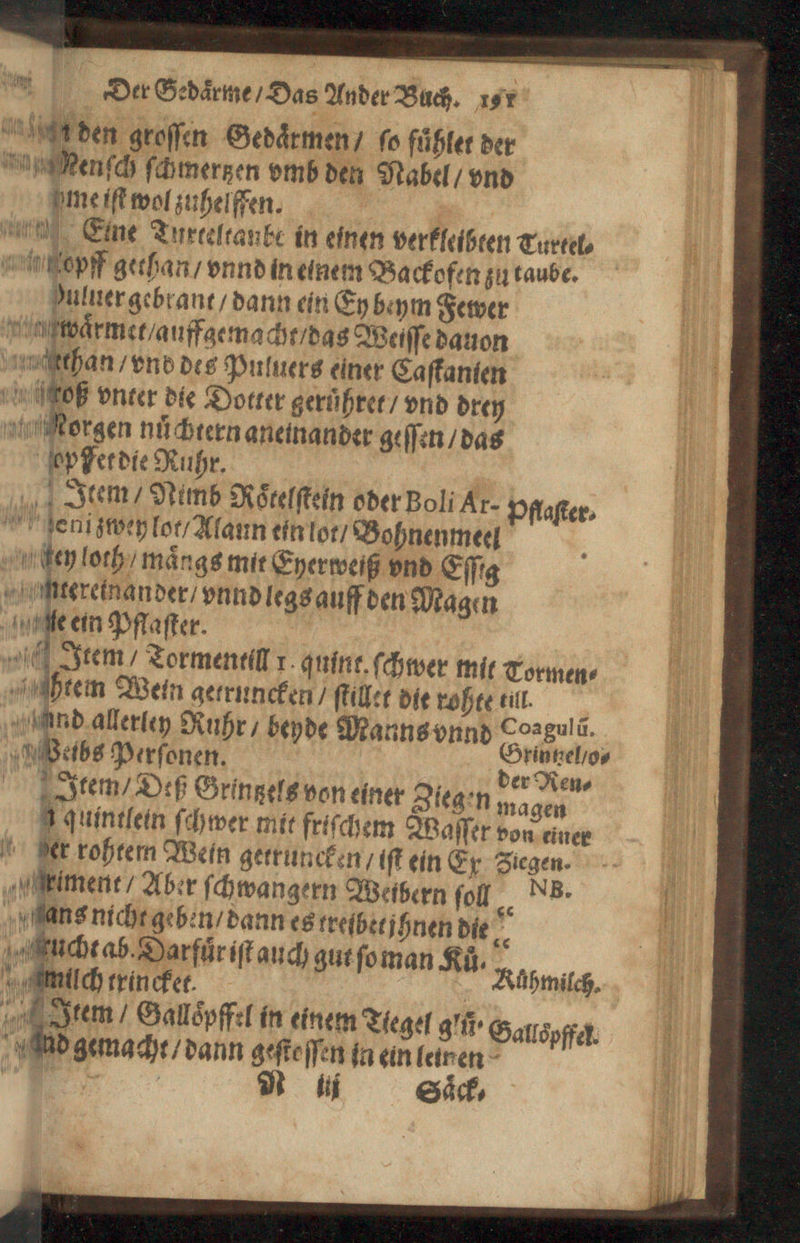 Der Gedårme / Das Ander Buch. 191
den groſſen Gedårmen / ſo fůhlet der
Menſch ſchmertzen vmb den Nabel / vnd
jhme iſt wol zuhelffen.
Eine Turteltaube in einen verkleibten Turtel⸗
Topff gethan / vnnd in einem Backofen zu taube.
Puluer gebrant / dann ein Ey beym Fewer
gewårmet / auffgemacht / das Weiſſe dauon
gethan / vnd des Puluers einer Caſtanien
groß vnter die Dotter gerůhret / vnd drey
Morgen nůchtern aneinander geſſen / das
ſtopffet die Ruhr.
Item / Nimb Rőtelſtein oder Boli Ar- Pflaſter.
meni zwey lot / Alaun ein lot / Bohnenmeel
loth / mångs mit Eyerweiß vnd Eſſig
vntereinander / vnnd legs auff den Magen
wie ein Pflaſter.
Item / Tormentill 1. quint. ſchwer mit Tormen⸗
rohtem Wein getruncken / ſtillet die rohte till.
vnd allerley Ruhr / beyde Manns vnnd Coagulū.
Weibs Perſonen. Grintzel / o⸗
Item / Deß Grintzels von einer Ziegen der Ren⸗
quintlein ſchwer mit friſchem Waſſer magen
oder rohtem Wein getruncken / iſt ein Ex von einer
periment / Aber ſchwangern Weibern ſoll Ziegen.
mans nicht geben / dann es treibet jhnen die NB.
Frucht ab. Darfůr iſt auch gut ſo man Ků⸗ “
milch trincket. Kůhmilch.
Item / Gallőpffel in einem Tiegel glů⸗ Gallőpffel.
end gemacht / dann geſtoſſen in ein leinen
N iij Såck⸗